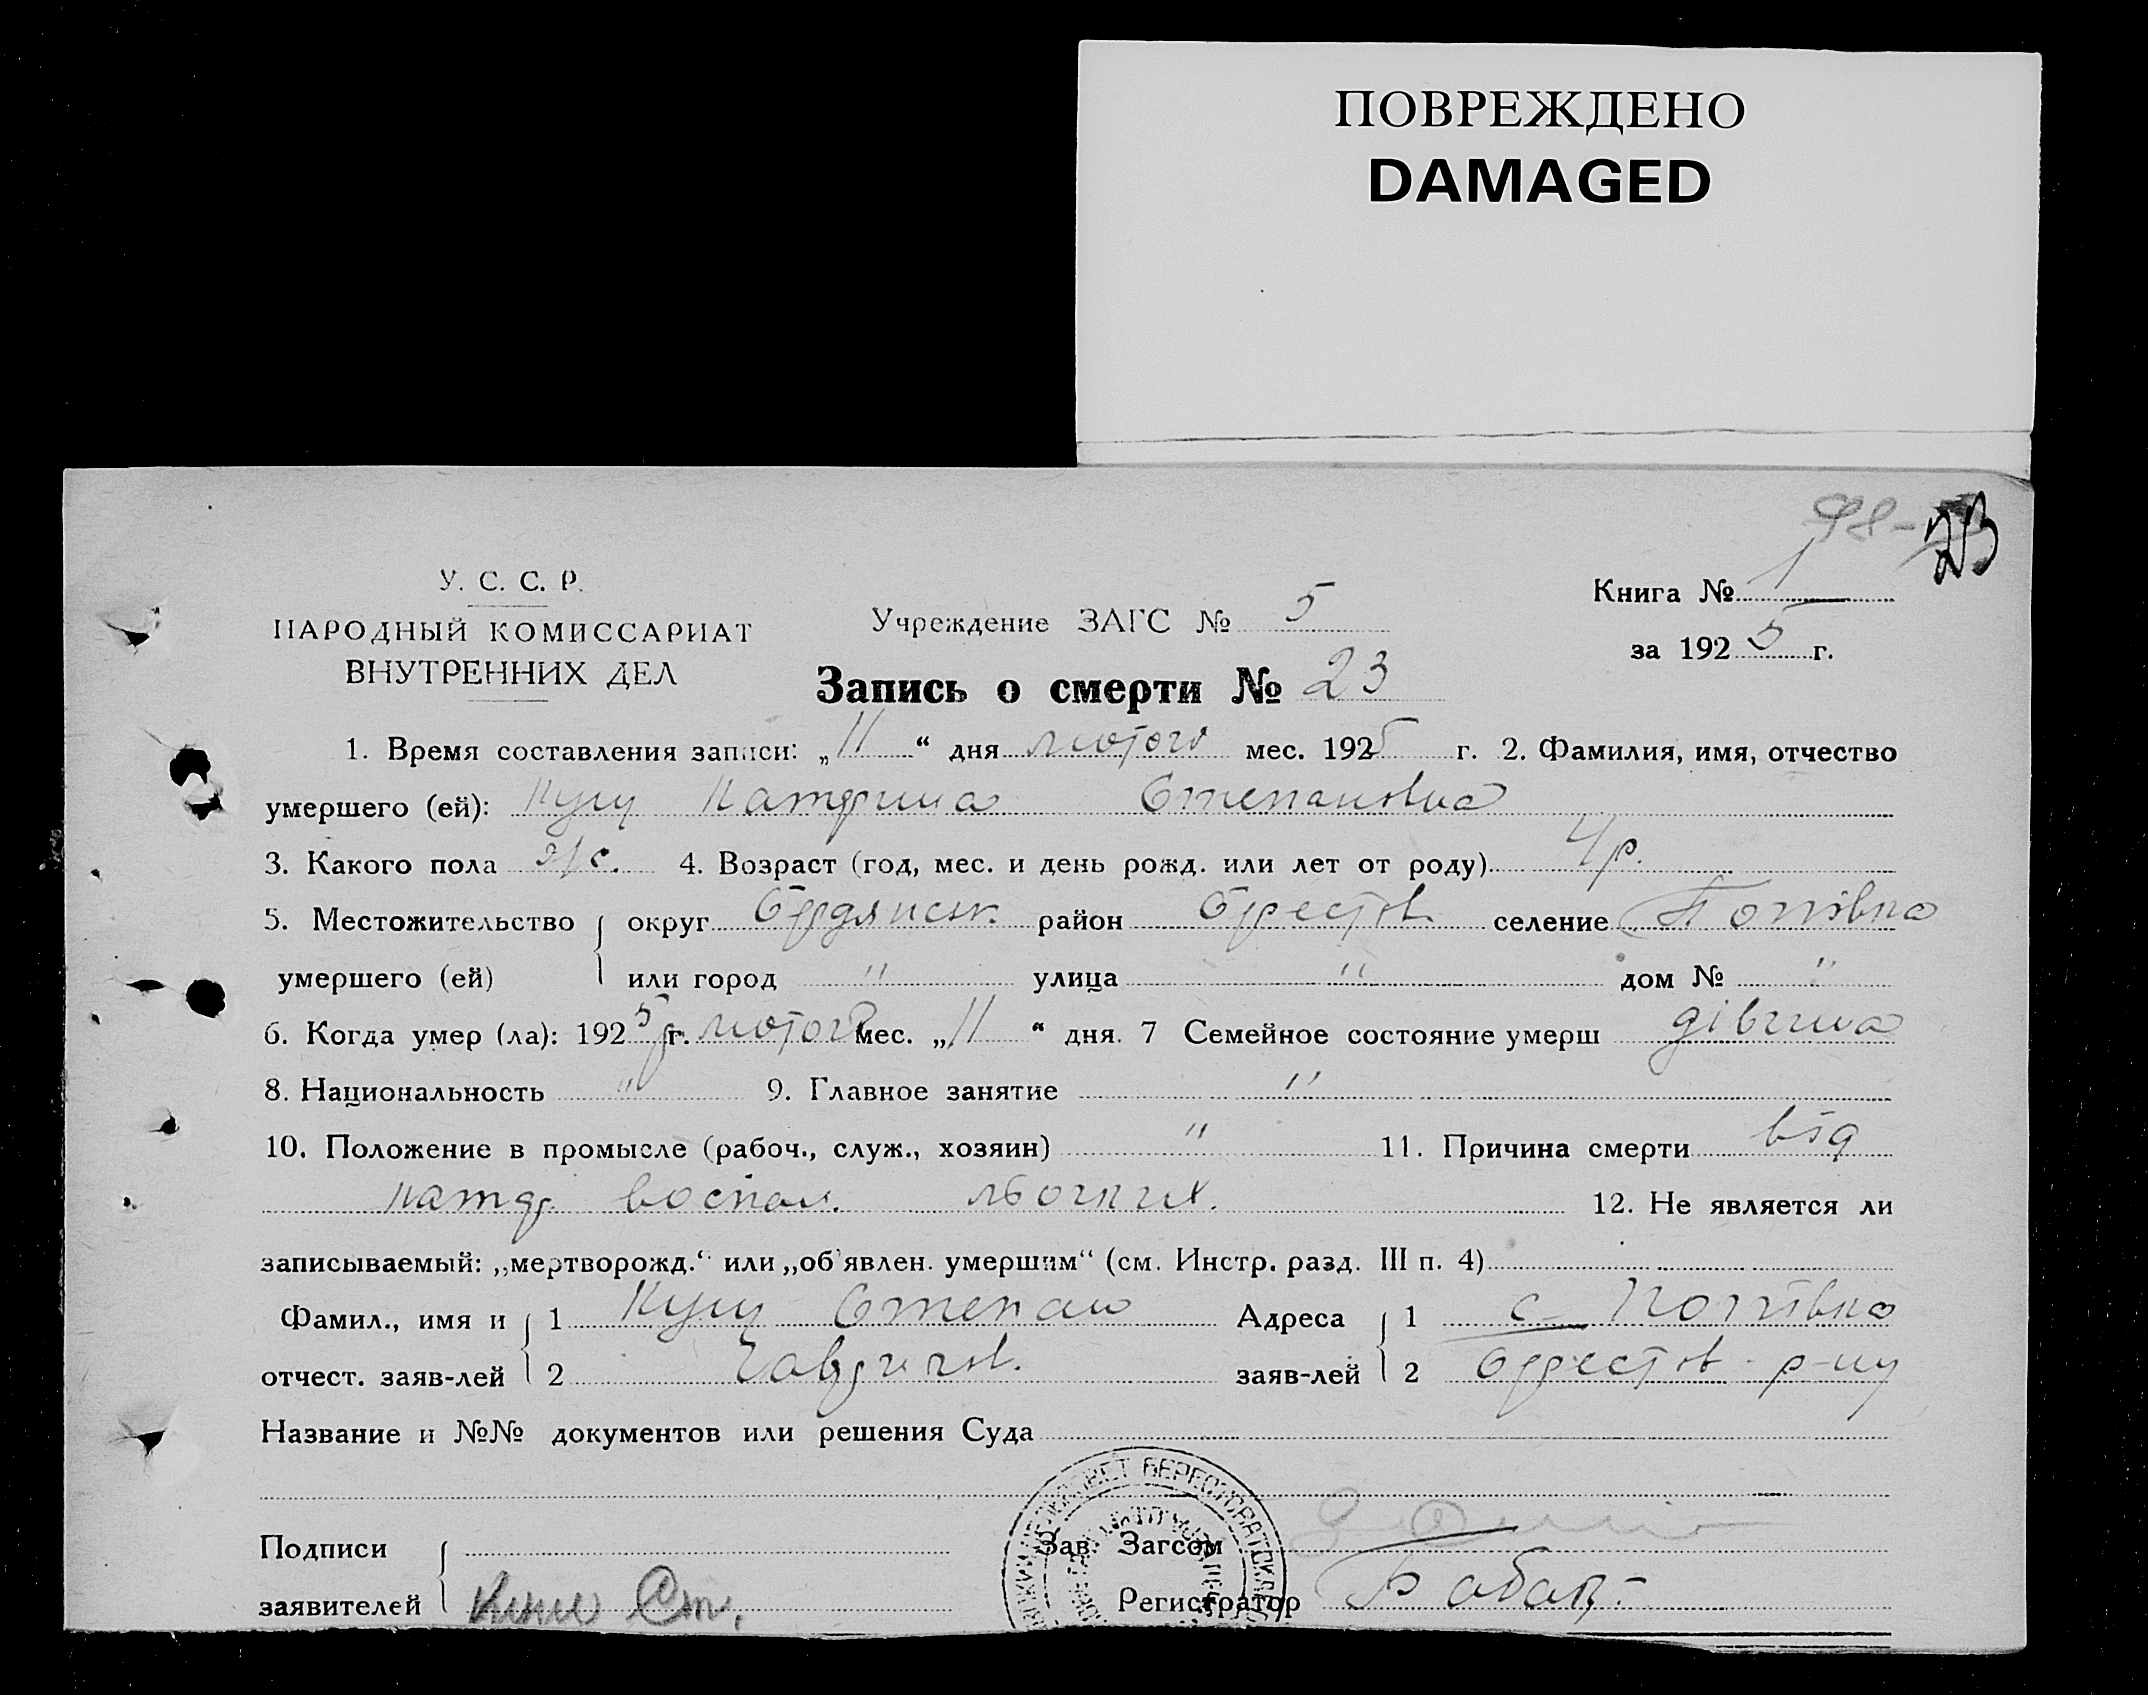 ПОВРЕЖДЕНО
DAMAGED
98-
23
У. С. С. Р.
НАРОДНЫЙ КОМИССАРИАТ
ВНУТРЕННИХ ДЕЛ
Учреждение ЗАГС № 5
Книга № 1
за 1925 г.
Запись о смерти № 23
1. Время составления записи: „11“ дня лютого мес. 1925 г. 2. Фамилия, имя, отчество
умершего (ей): Катерина Степановна
3. Какого пола ж/с. 4. Возраст (год, мес. и день рожд. или лет от роду) 4 р.
5. Местожительство округ Бердянськ. район Берестов. селение Попівка
умершего (ей) или город " улица " дом № "
6. Когда умер (ла): 1925 г. лютого мес. „11“ дня. 7 Семейное состояние умерш дівчина
8. Национальность " 9. Главное занятие "
10. Положение в промысле (рабоч., служ., хозяин) " 11. Причина смерти від
катар. воспал. лёогких. 12. Не является ли
записываемый: „мертворожд.“ или „об'явлен. умершим“ (см. Инстр. разд. III п. 4)
Фамил., имя и 1 Степан Адреса 1 с. Попівка
отчест. заяв-лей 2 Гаврилов. заяв-лей 2 Берестов. р-ну
Название и №№ документов или решения Суда
Подписи Зав. Загсом
заявителей Ст. Регистратор